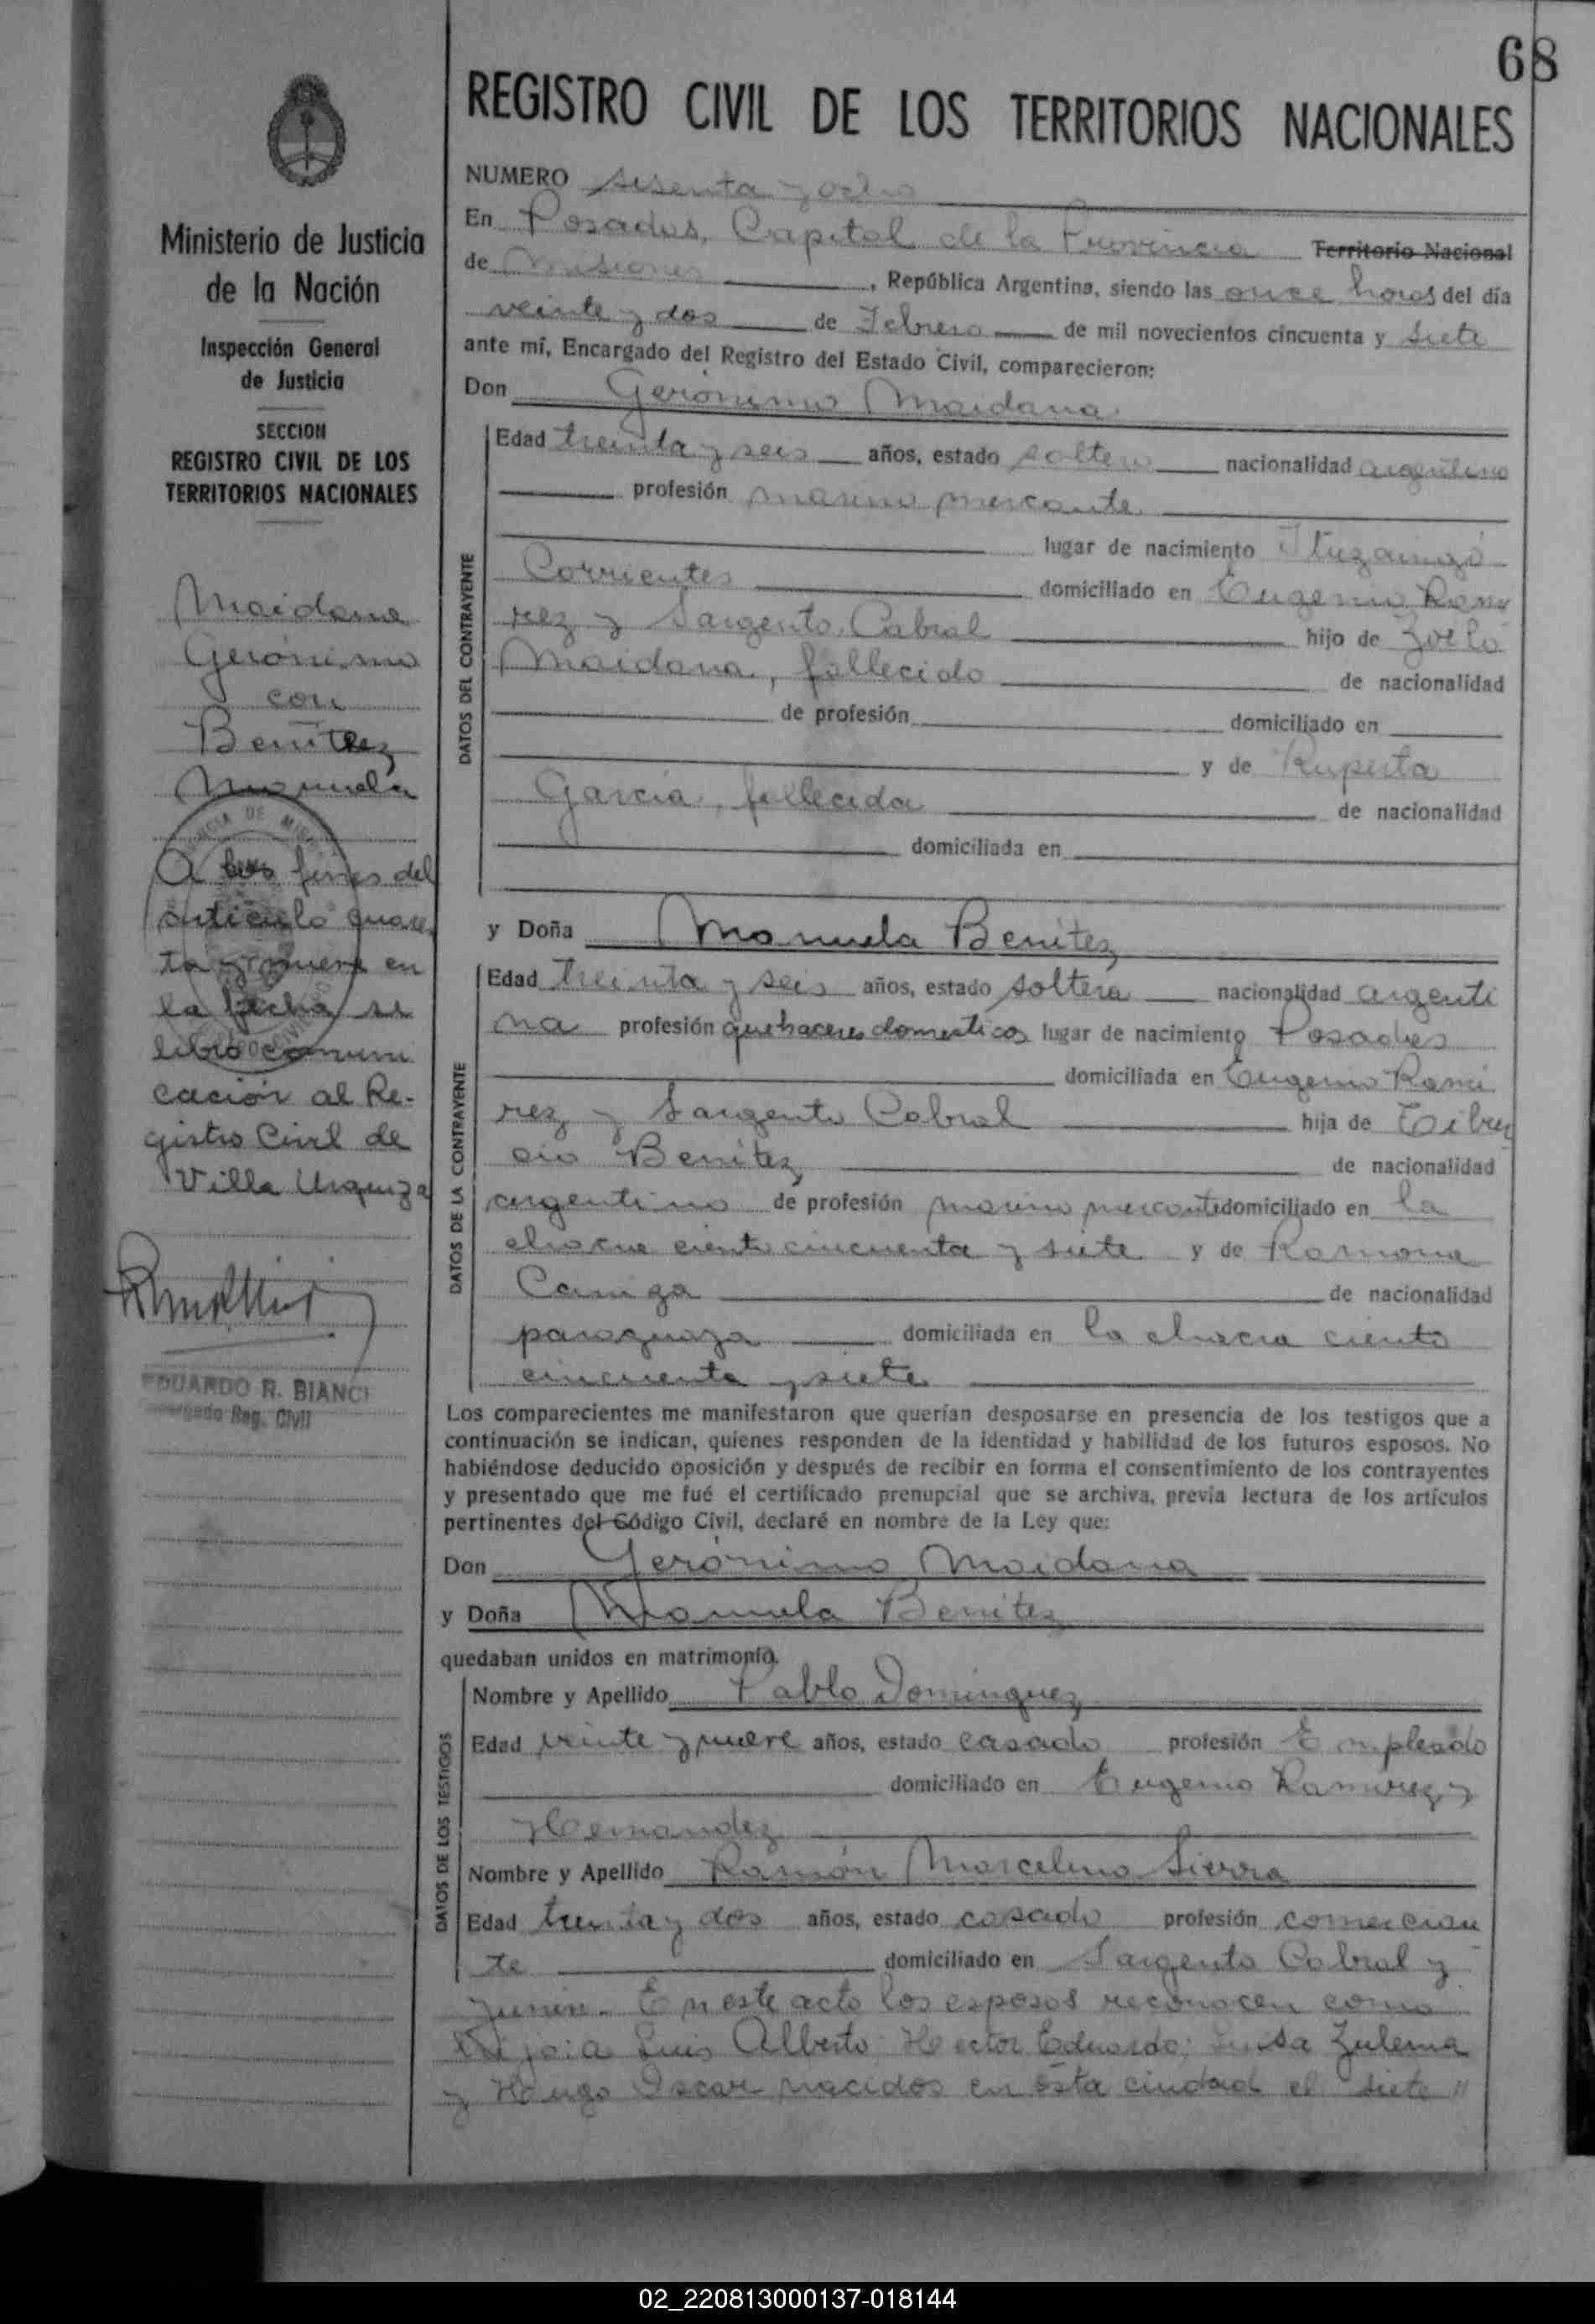 68
REGISTRO CIVIL DE LOS TERRITORIOS NACIONALES
Ministerio de Justicia
de la Nación
Inspección General
de Justicia
SECCION
REGISTRO CIVIL DE LOS
TERRITORIOS NACIONALES
Maidana
Gerónimo
con
Benítez
Manuela
A los fines del
artículo quare
ta y nueve en
la fecha se
libró comuni
cación al Re-
gistro Civil de
Villa Urquiza
EDUARDO R. BIANCI
Reg. Civil
NUMERO sesenta y ocho
En Posadas, Capital de la Provincia Territorio Nacional
de Misiones, República Argentina, siendo las once horas del día
veinte y dos de Febrero de mil novecientos cincuenta y siete
ante mí, Encargado del Registro del Estado Civil, comparecieron:
Don Gerónimo Maidana
DATOS DEL CONTRAYENTE
Edad treinta y seis años, estado soltero nacionalidad argentino
profesión marino mercante
lugar de nacimiento Ituzaingó
Corrientes domiciliado en Eugenio Rami
rez y Sargento Cabral hijo de Zoilo
Maidana, fallecido de nacionalidad
de profesión domiciliado en
y de Ruperta
García, fallecida de nacionalidad
domiciliada en
y Doña Manuela Benítez
DATOS DE LA CONTRAYENTE
Edad treinta y seis años, estado soltera nacionalidad argenti
na profesión quehaceres domesticos lugar de nacimiento Posadas
domiciliada en Eugenio Rami
rez y Sargento Cabral hija de Tibur
cio Benítez de nacionalidad
argentino de profesión marino mercante domiciliado en la
chacra ciento cincuenta y siete y de Ramona
de nacionalidad
paraguaya domiciliada en la chacra ciento
cincuenta y siete
Los comparecientes me manifestaron que querían desposarse en presencia de los testigos que a
continuación se indican, quienes responden de la identidad y habilidad de los futuros esposos. No
habiéndose deducido oposición y después de recibir en forma el consentimiento de los contrayentes
y presentado que me fué el certificado prenupcial que se archiva, previa lectura de los artículos
pertinentes del Código Civil, declaré en nombre de la Ley que:
Don Gerónimo Maidana
y Doña Manuela Benítez
quedaban unidos en matrimonio.
DATOS DE LOS TESTIGOS
Nombre y Apellido Pablo Dominguez
Edad veinte y nueve años, estado casado profesión Empleado
domiciliado en Eugenio Ramirez y
Hernandez
Nombre y Apellido Ramón Marcelino Sierra
Edad treinta y dos años, estado casado profesión comercian
te domiciliado en Sargento Cabral y
Junin. En este acto los esposos reconocen como
hijo:a Luis Alberto; Hector Eduardo; Luisa Zulema
y Hugo Oscar nacidos en ésta ciudad el siete
02_220813000137-018144